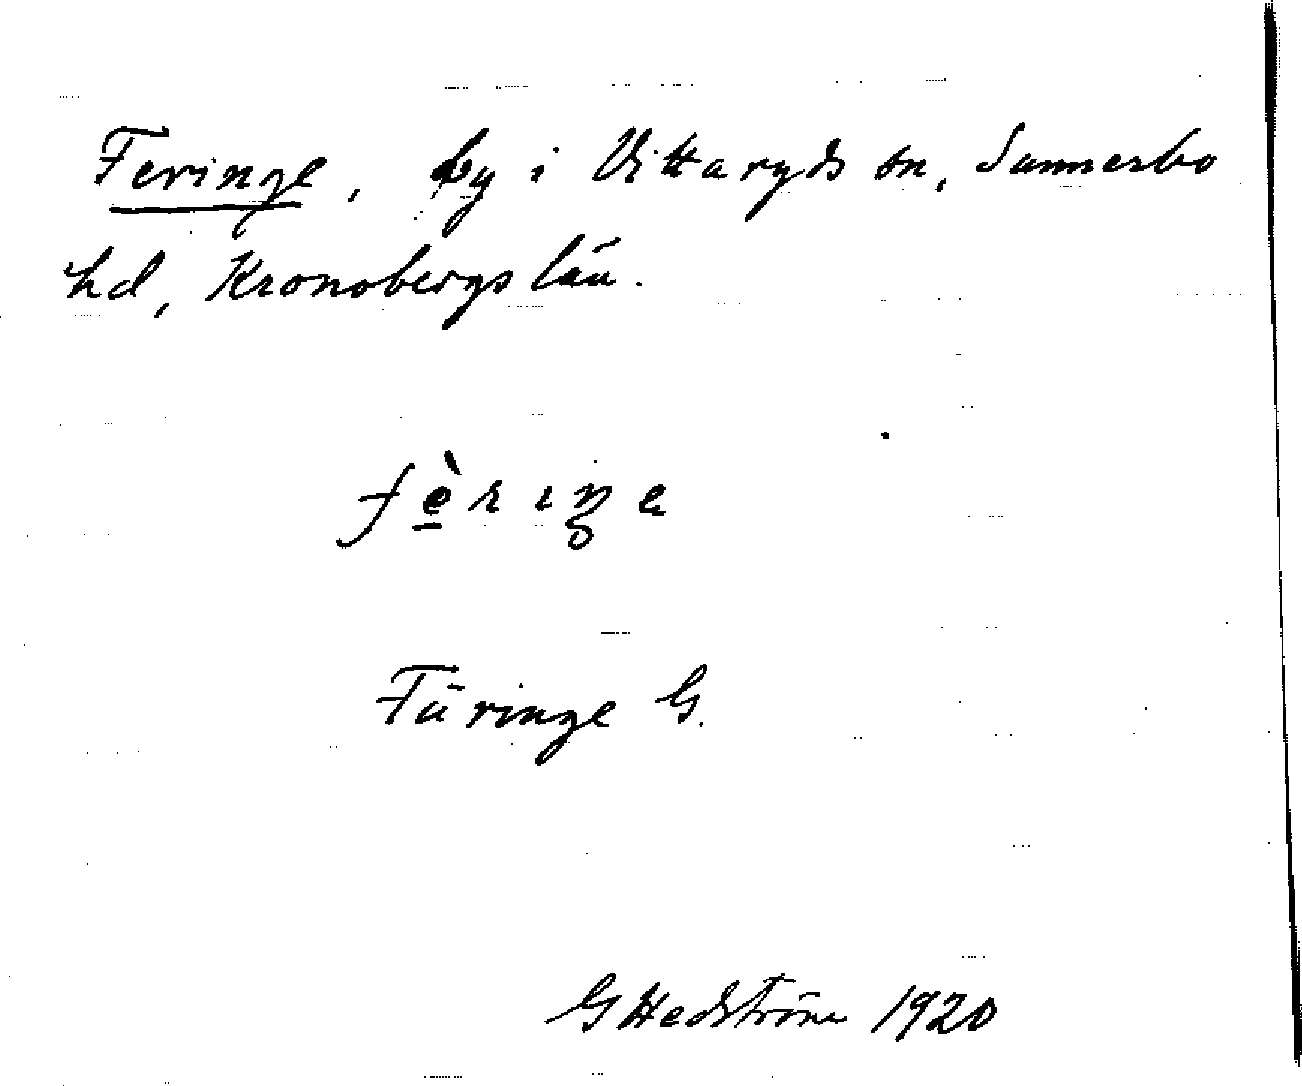 Feringe, by i Vittaryds sn, Sunnerbo
hd, Kronobergs län.
fèriŋe
Färinge G.
G Hedström 1920